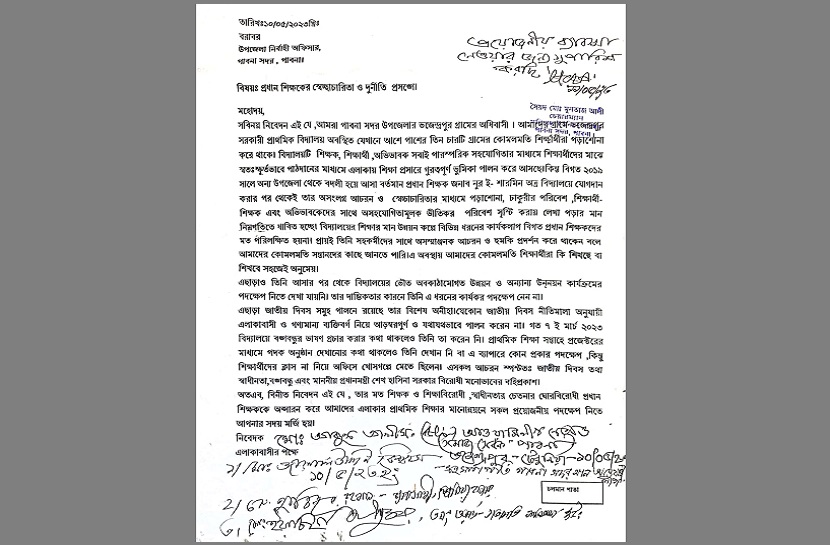 তারিখঃ১০/০৫/২০২৩খ্রিঃ
বরাবর
উপজেলা নির্বাহী অফিসার,
পাবনা সদর , পাবনা।
প্রয়োজনীয় ব্যবস্থা
নেওয়ার জন্য সুপারিশ
করছি
বিষয়ঃ প্রধান শিক্ষকের স্বেচ্ছাচারিতা ও দুর্নীতি প্রসঙ্গে।
সৈয়দ মোঃ মুনতাজ আলী
চেয়ারম্যান
পাবনা সদর, পাবনা।
মহোদয়,
সবিনয় নিবেদন এই যে ,আমরা পাবনা সদর উপজেলার ভজেন্দ্রপুর গ্রামের অধিবাসী । আমাদের গ্রামে ভজেন্দ্রপুর
সরকারী প্রাথমিক বিদ্যালয় অবস্থিত যেখানে আশে পাশের তিন চারটি গ্রামের কোমলমতি শিক্ষার্থীরা পড়াশোনা
করে থাকে। বিদ্যালয়টি শিক্ষক, শিক্ষার্থী ,অভিভাবক সবাই পারস্পরিক সহযোগিতার মাধ্যমে শিক্ষার্থীদের মাঝে
স্বতঃস্ফূর্তভাবে পাঠদানের মাধ্যমে এলাকায় শিক্ষা প্রসারে গুরত্বপূর্ণ ভুমিকা পালন করে আসছে।কিন্তু বিগত ২০১৯
সালে অন্য উপজেলা থেকে বদলী হয়ে আসা বর্তমান প্রধান শিক্ষক জনাব নুর ই- শারমিন অত্র বিদ্যালয়ে যোগদান
করার পর থেকেই তার অসংলগ্ন আচরন ও স্বেচ্ছাচারিতার মাধ্যমে পড়াশোনা, চাকুরীর পরিবেশ ,শিক্ষার্থী-
শিক্ষক এবং অভিভাবকদের সাথে অসহযোগিতামূলক ভীতিকর পরিবেশ সৃষ্টি করায় লেখা পড়ার মান
নিম্নগতিতে ধাবিত হচ্ছে। বিদ্যালয়ের শিক্ষার মান উন্নয়ন কল্পে বিভিন্ন ধরনের কার্যকলাপ বিগত প্রধান শিক্ষকদের
মত পরিলক্ষিত হয়না। প্রায়ই তিনি সহকর্মীদের সাথে অসম্মানজনক আচরন ও হুমকি প্রদর্শন করে থাকেন বলে
আমাদের কোমলমতি সন্তানদের কাছে জানতে পারি।এ অবস্থায় আমাদের কোমলমতি শিক্ষার্থীরা কি শিখছে বা
শিখবে সহজেই অনুমেয়।
এছাড়াও তিনি আসার পর থেকে বিদ্যালয়ের ভৌত অবকাঠামোগত উন্নয়ন ও অন্যান্য উন্নয়ন কার্যক্রমের
পদক্ষেপ নিতে দেখা যায়নি। তার দাম্ভিকতার কারনে তিনি এ ধরনের কার্যকর পদক্ষেপ নেন না।
এছাড়া জাতীয় দিবস সমূহ পালনে রয়েছে তার বিশেষ অনীহা।যেকোন জাতীয় দিবস নীতিমালা অনুযায়ী
এলাকাবাসী ও গণ্যমান্য ব্যক্তিবর্গ নিয়ে আড়ম্বরপূর্ণ ও যথাযথভাবে পালন করেন না। গত ৭ ই মার্চ ২০২৩
বিদ্যালয়ে বঙ্গবন্ধুর ভাষণ প্রচার করার কথা থাকলেও তিনি তা করেন নি। প্রাথমিক শিক্ষা সপ্তাহে প্রজেক্টরের
মাধ্যমে পদক অনুষ্ঠান দেখানোর কথা থাকলেও তিনি দেখান নি বা এ ব্যাপারে কোন প্রকার পদক্ষেপ ,কিন্তু
শিক্ষার্থীদের ক্লাস না নিয়ে অফিসে খোসগল্পে মেতে ছিলেন। এসকল আচরন স্পষ্টতঃ জাতীয় দিবস তথা
স্বাধীনতা,বঙ্গবন্ধু এবং মাননীয় প্রধানমন্ত্রী শেখ হাসিনা সরকার বিরোধী মনোভাবের বহিঃপ্রকাশ।
অতএব, বিনীত নিবেদন এই যে , তার মত শিক্ষক ও শিক্ষাবিরোধী ,স্বাধীনতার চেতনার ঘোরবিরোধী প্রধান
শিক্ষককে অপসারন করে আমাদের এলাকার প্রাথমিক শিক্ষার মানোন্নয়নে সকল প্রয়োজনীয় পদক্ষেপ নিতে
আপনার সদয় মর্জি হয়।
নিবেদক
এলাকাবাসীর পক্ষে
১০/৫/২৩ইং
চলমান পাতা